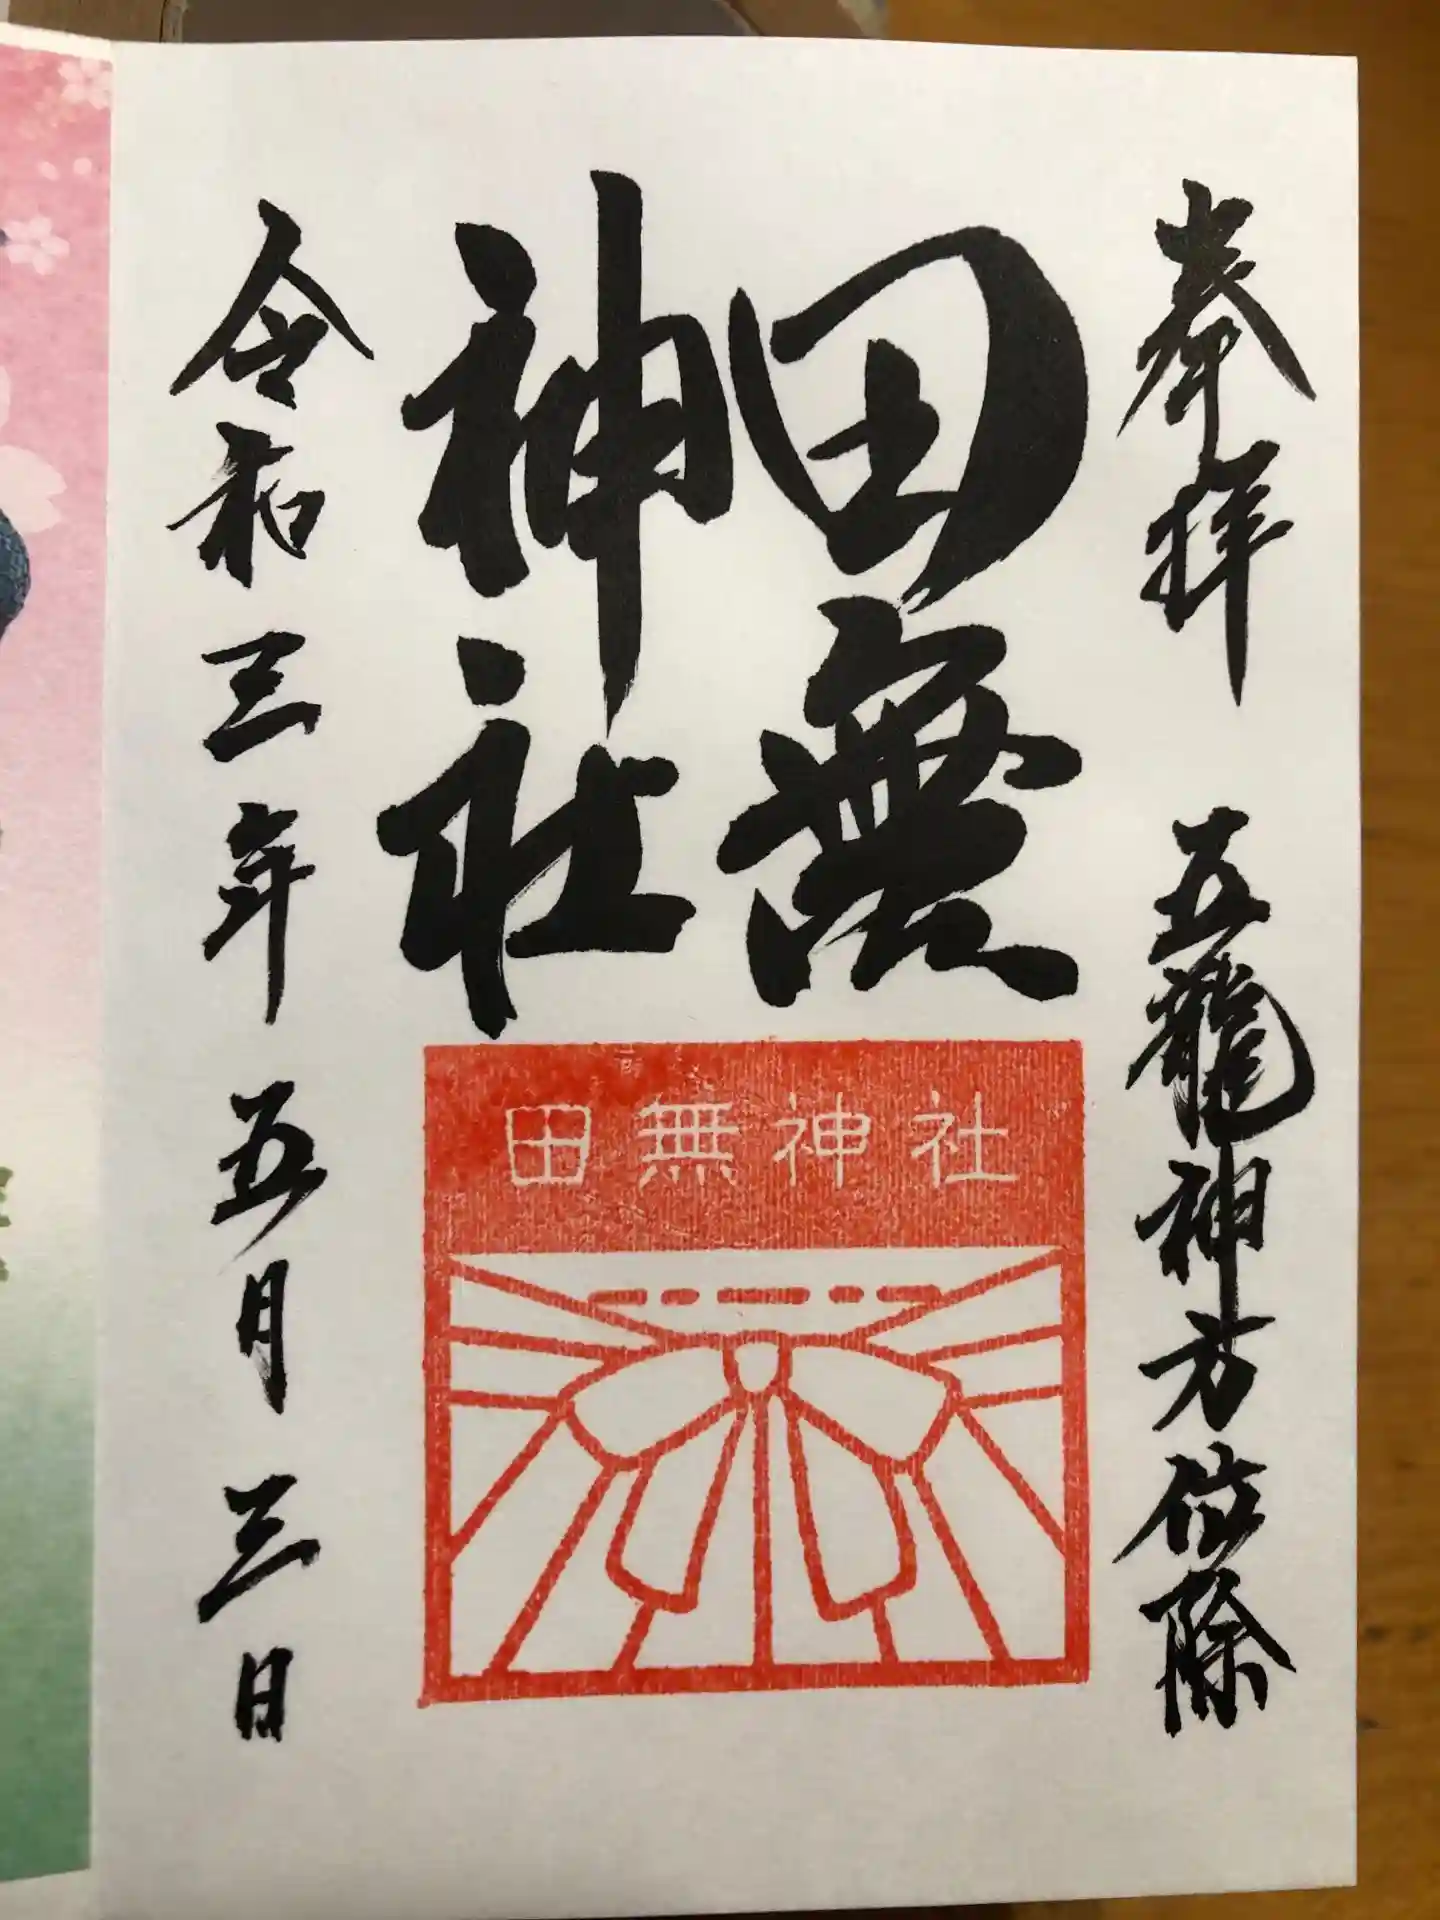 奉拝 五龍神方位除
田無
神社
田無神社
令和三年五月三日